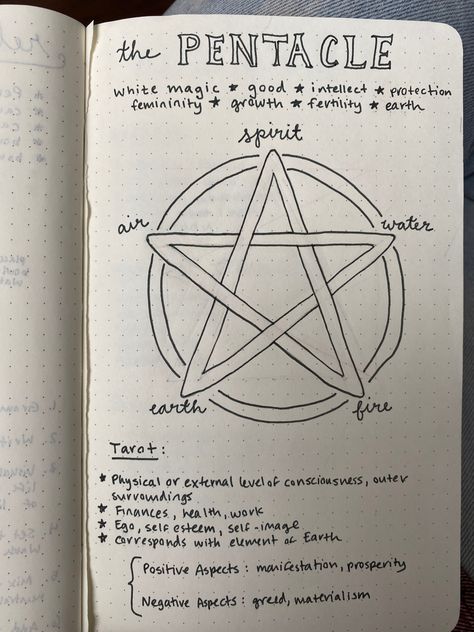 the PENTACLE
white magic ★ good ★ intellect ★ protection
femininity ★ growth ★ fertility ★ earth
spirit
air
water
earth
fire
Tarot:
★ Physical or external level of consciousness, outer
surroundings
★ Finances, health, work
★ Ego, self esteem, self-image
★ Corresponds with element of Earth
Positive Aspects: manifestation, prosperity
Negative Aspects: greed, materialism